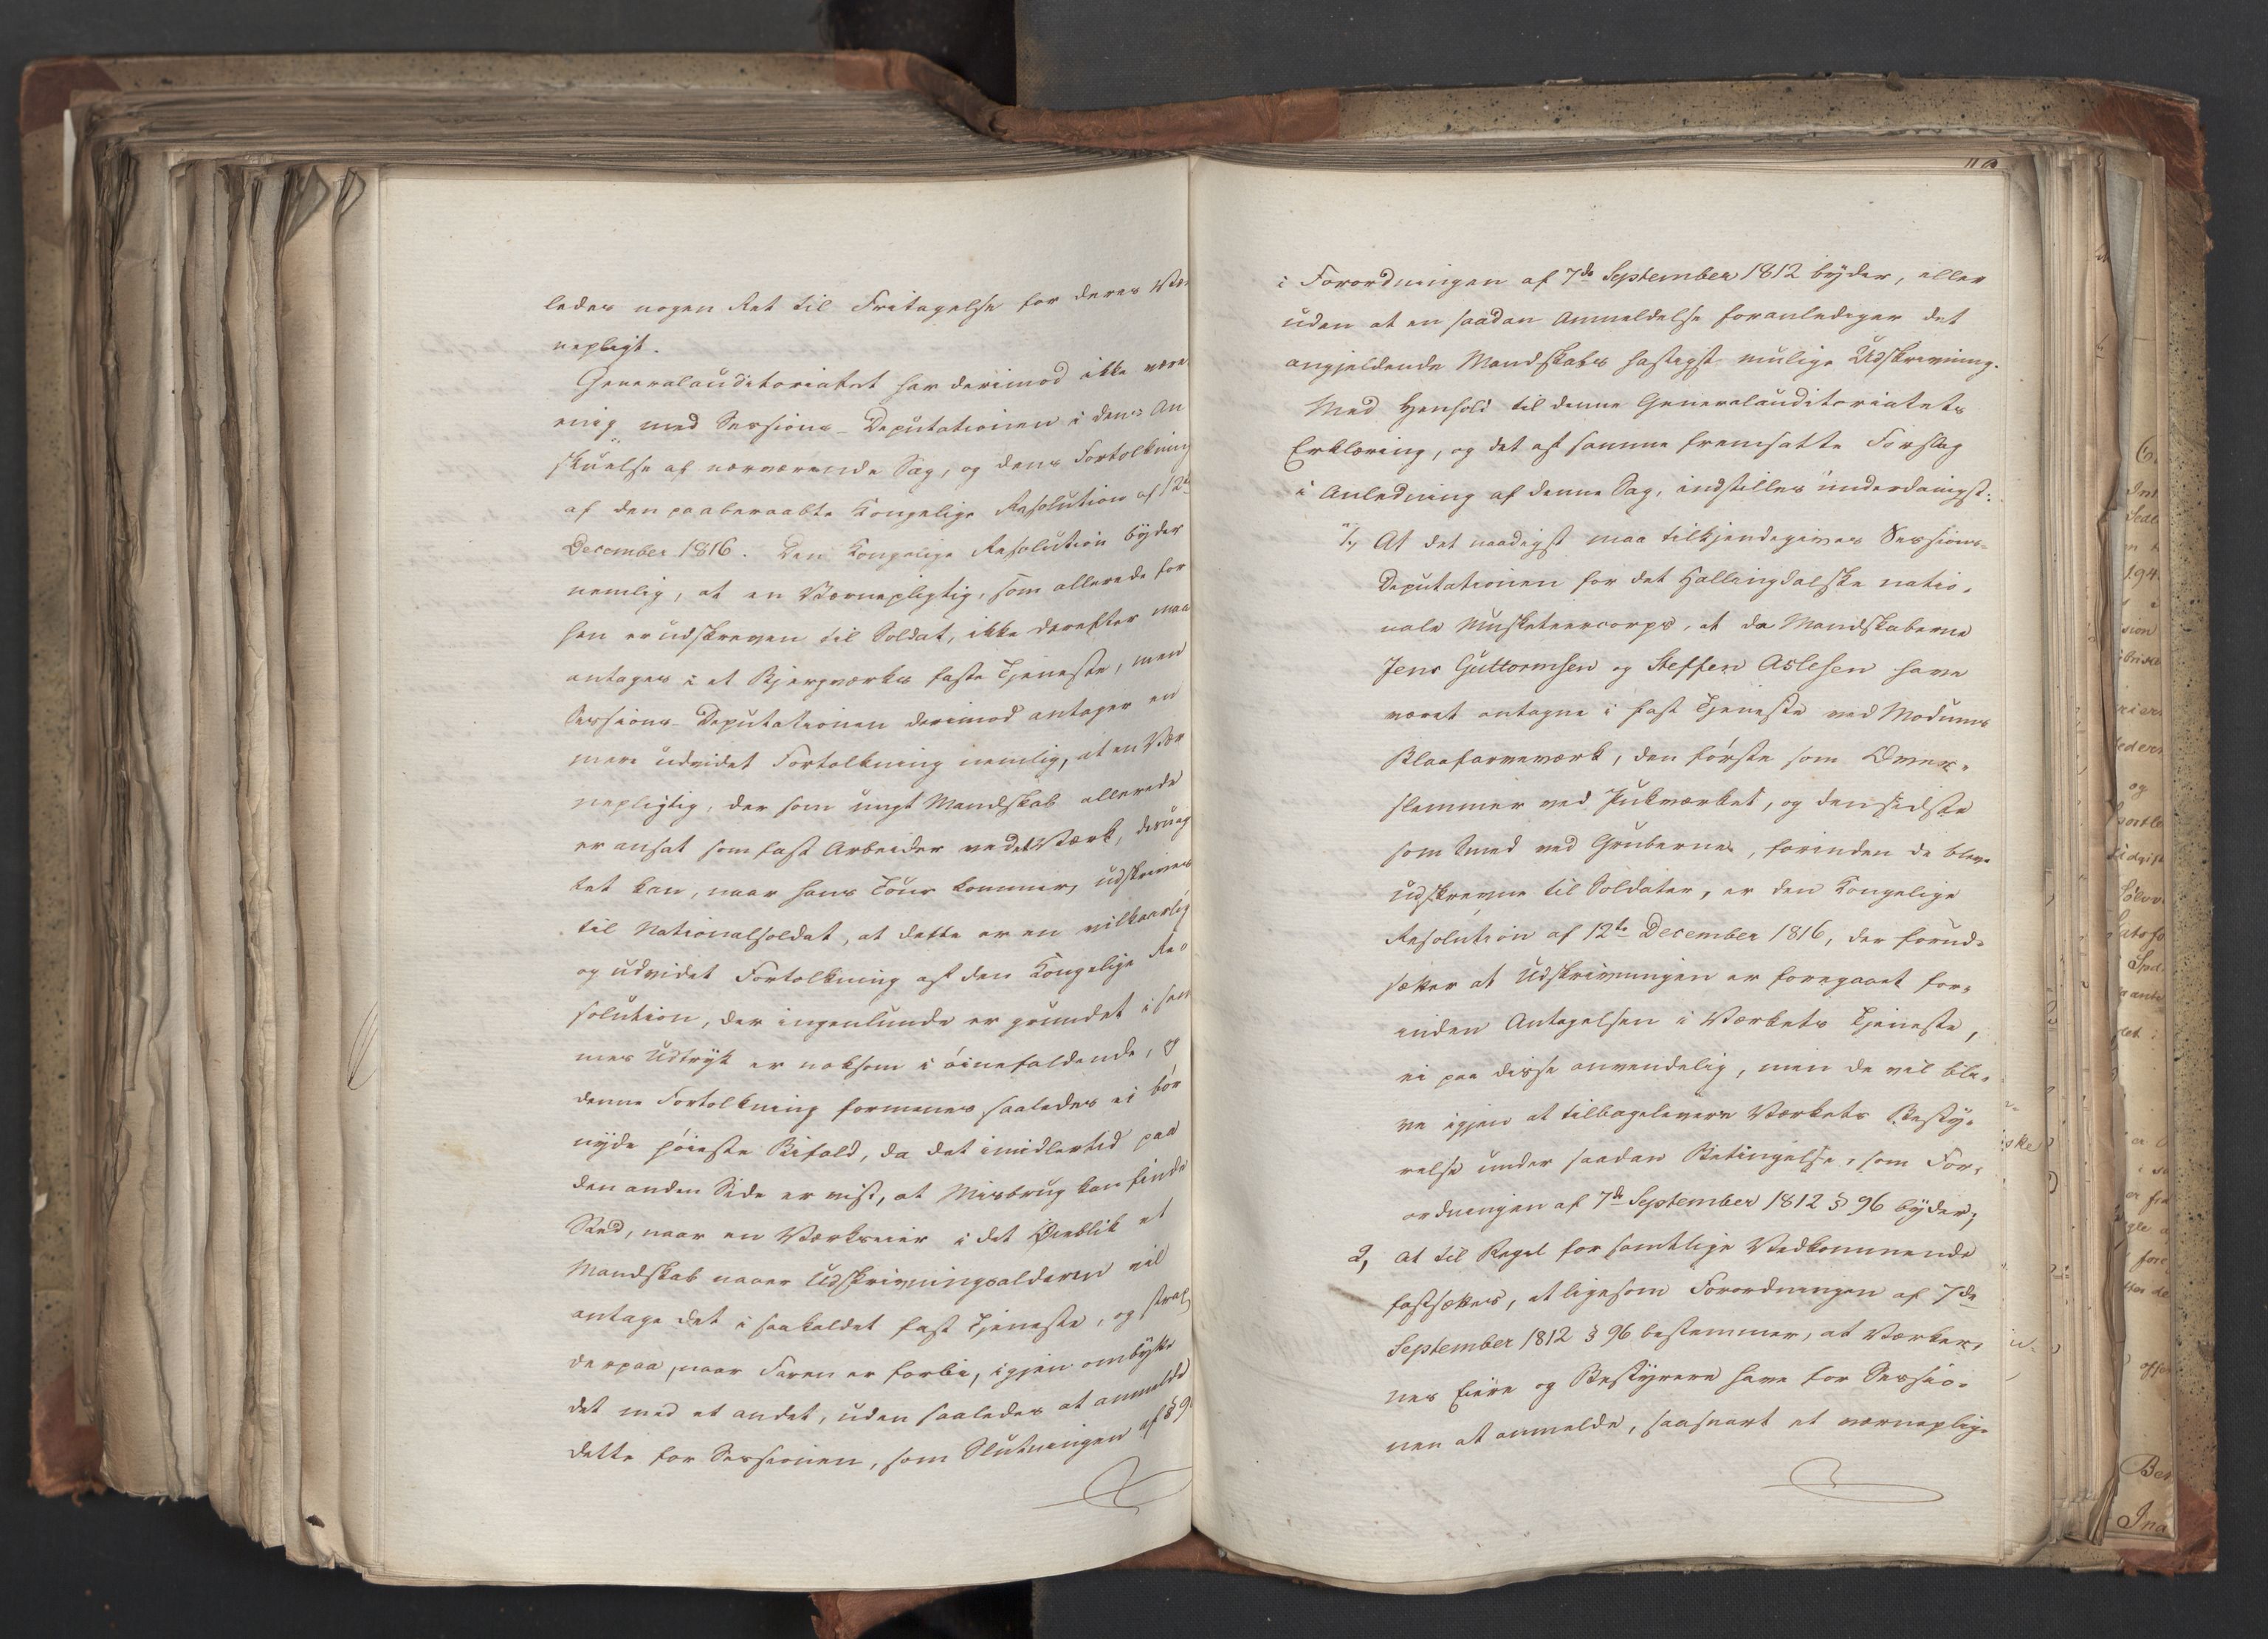 ledes nogen Ret til Fritagelse for deres Vær
nepligt.
Generalauditoriatet har derimod ikke være
enig med Sessions-Deputationen i dens An
skuelse af nærværende Sag, og dens Fortolkning
af den paaberaabte Kongelige Resolution af 12te
December 1816. Den Kongelige Resolution byder
nemlig, at en Værnepligtig, som allerede for
hen er udskreven til Soldat, ikke derefter maa
antages i et Bjergværks faste Tjeneste, men
Sessions-Deputationen derimod antager en
mere udvidet Fortolkning nemlig, at en Vær
nepligtig, der som ungt Mandskab allerede
er ansat som fast Arbeider ved et Værk, desuag
tet kan, naar hans Tour kommer, udskrives
til Nationalsoldat, at dette er en vilkaarlig
og udvidet Fortolkning af den Kongelige Re-
solution, der ingenlunde er grundet i sam
mes Udtryk er noksom i øinefaldende, og
denne Fortolkning formenes saaledes ei bør
nyde høieste Bifald, da det imidlertid paa
den anden Side er vist, at Misbrug kan finde
Sted, naar en Værkseier i det Øieblik et
Mandskab naaer Udskrivningsalderen vil
antage det i saakaldet fast Tjeneste, og strax
derpaa, naar Faren er forbi, igjen ombytte
det med et andet, uden saaledes at anmelde
dette for Sessionen, som Slutningen af § 9
i Forordningen af 7de September 1812 byder, eller
uden at en saadan Anmeldelse foranlediger det
angjeldende Mandskabs hastigst mulige Udskrivning.
Med Henhold til denne Generalauditoriatets
Erklæring, og det af samme fremsatte Forslag
i Anledning af denne Sag, indstilles underdanigst:
1, At det naadigst maa tilkjendegives Sessions-
Deputationen for det Hallingdalske natio-
nale Musketeercorps, at da Mandskaberne
Jens Guttormsen og Steffen Aslesen have
været antagne i fast Tjeneste ved Modums
Blaafarveværk, den første som Over-
slemmer ved Pukværket, og den sidste
som Smed ved Gruberne, forinden de bleve
udskrevne til Soldater, er den Kongelige
Resolution af 12te December 1816, der forud-
sætter at Udskrivningen er foregaaet for-
inden Antagelsen i Værkets Tjeneste,
ei paa disse anvendelig, men de vil bli-
ve igjen at tilbagelevere Værkets Besty-
relse under saadan Betingelse, som For-
ordningen af 7de September 1812 § 96 byder;
2, at til Regel for samtlige Vedkommende
fastsættes, at ligesom Forordningen af 7de
September 1812 § 96 bestemmer, at Værker-
nes Eiere og Bestyrere have for Sessio-
nen at anmelde, saasnart et værneplig-